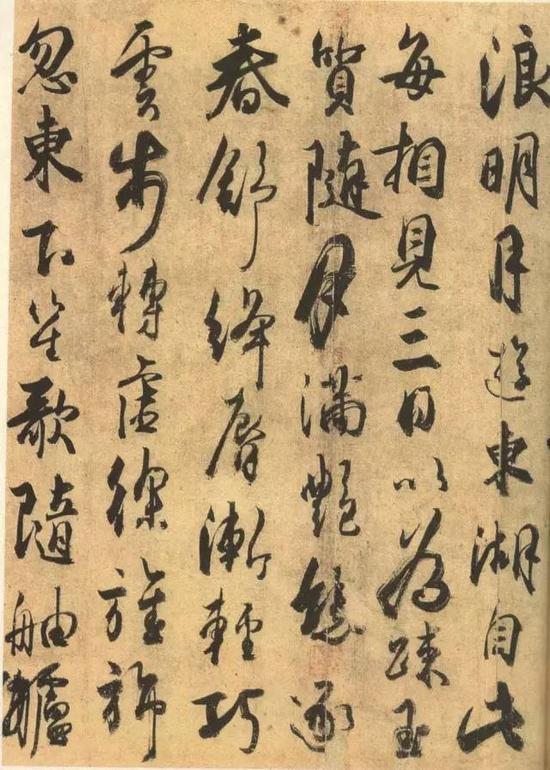 浪明月遊東湖自此
每相見三日以為疎玉
質隨月滿艷態逐
春舒絳脣漸輕巧
雲步轉虛徐旌旆
忽東下笙歌隨舳艫